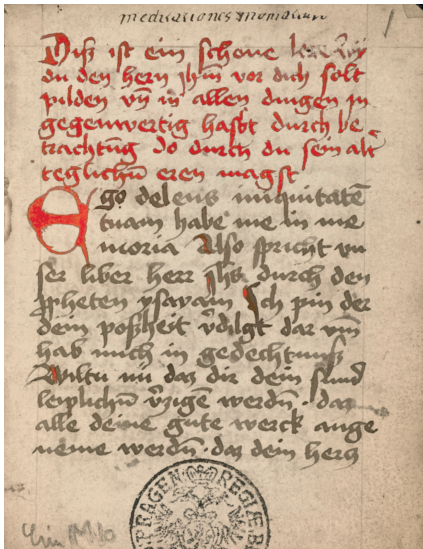 meditationes monialium
1
Diß ist ein schone leze wy
du den hern ihm̄ vor dich solt
pilden vn̄ in allen dingen in
gegenwertig hast durch be
trachtūg do durch du sein alt
teglichn̄ eren magst
Ego delens iniquitatē
tuam habe me in me
moria Also spricht vn
ser liber herr ihs durch den
ppheten ysayam Ich pin der
dein poßheit v̄dilgt dar vm̄
hab mich in gedechtnuß
Wiltu nu daz dir dein sund
leyplichn̄ v̄zigē werdn̄ · daz
alle deine gute werck ange
neme werdn̄ · daz dein hercz
PRAGEN · REGIÆ B